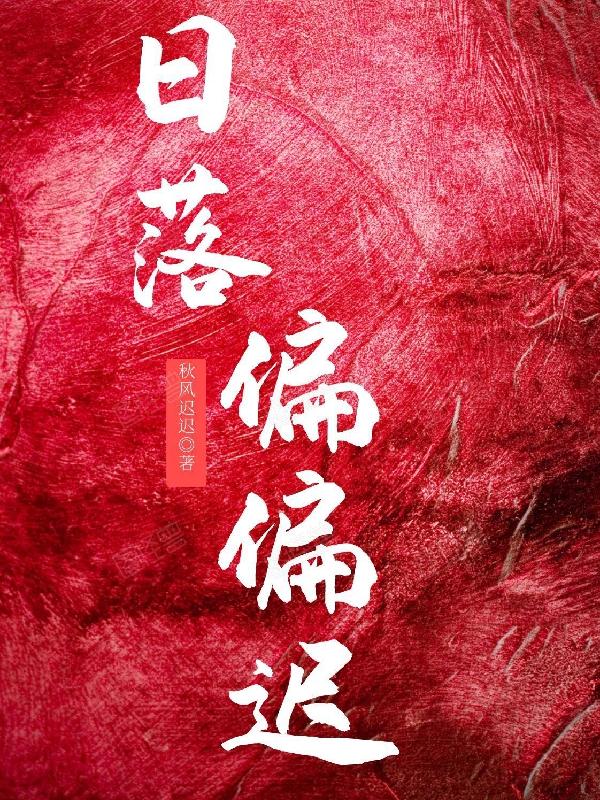 日落
偏偏迟
秋风迟迟◎著